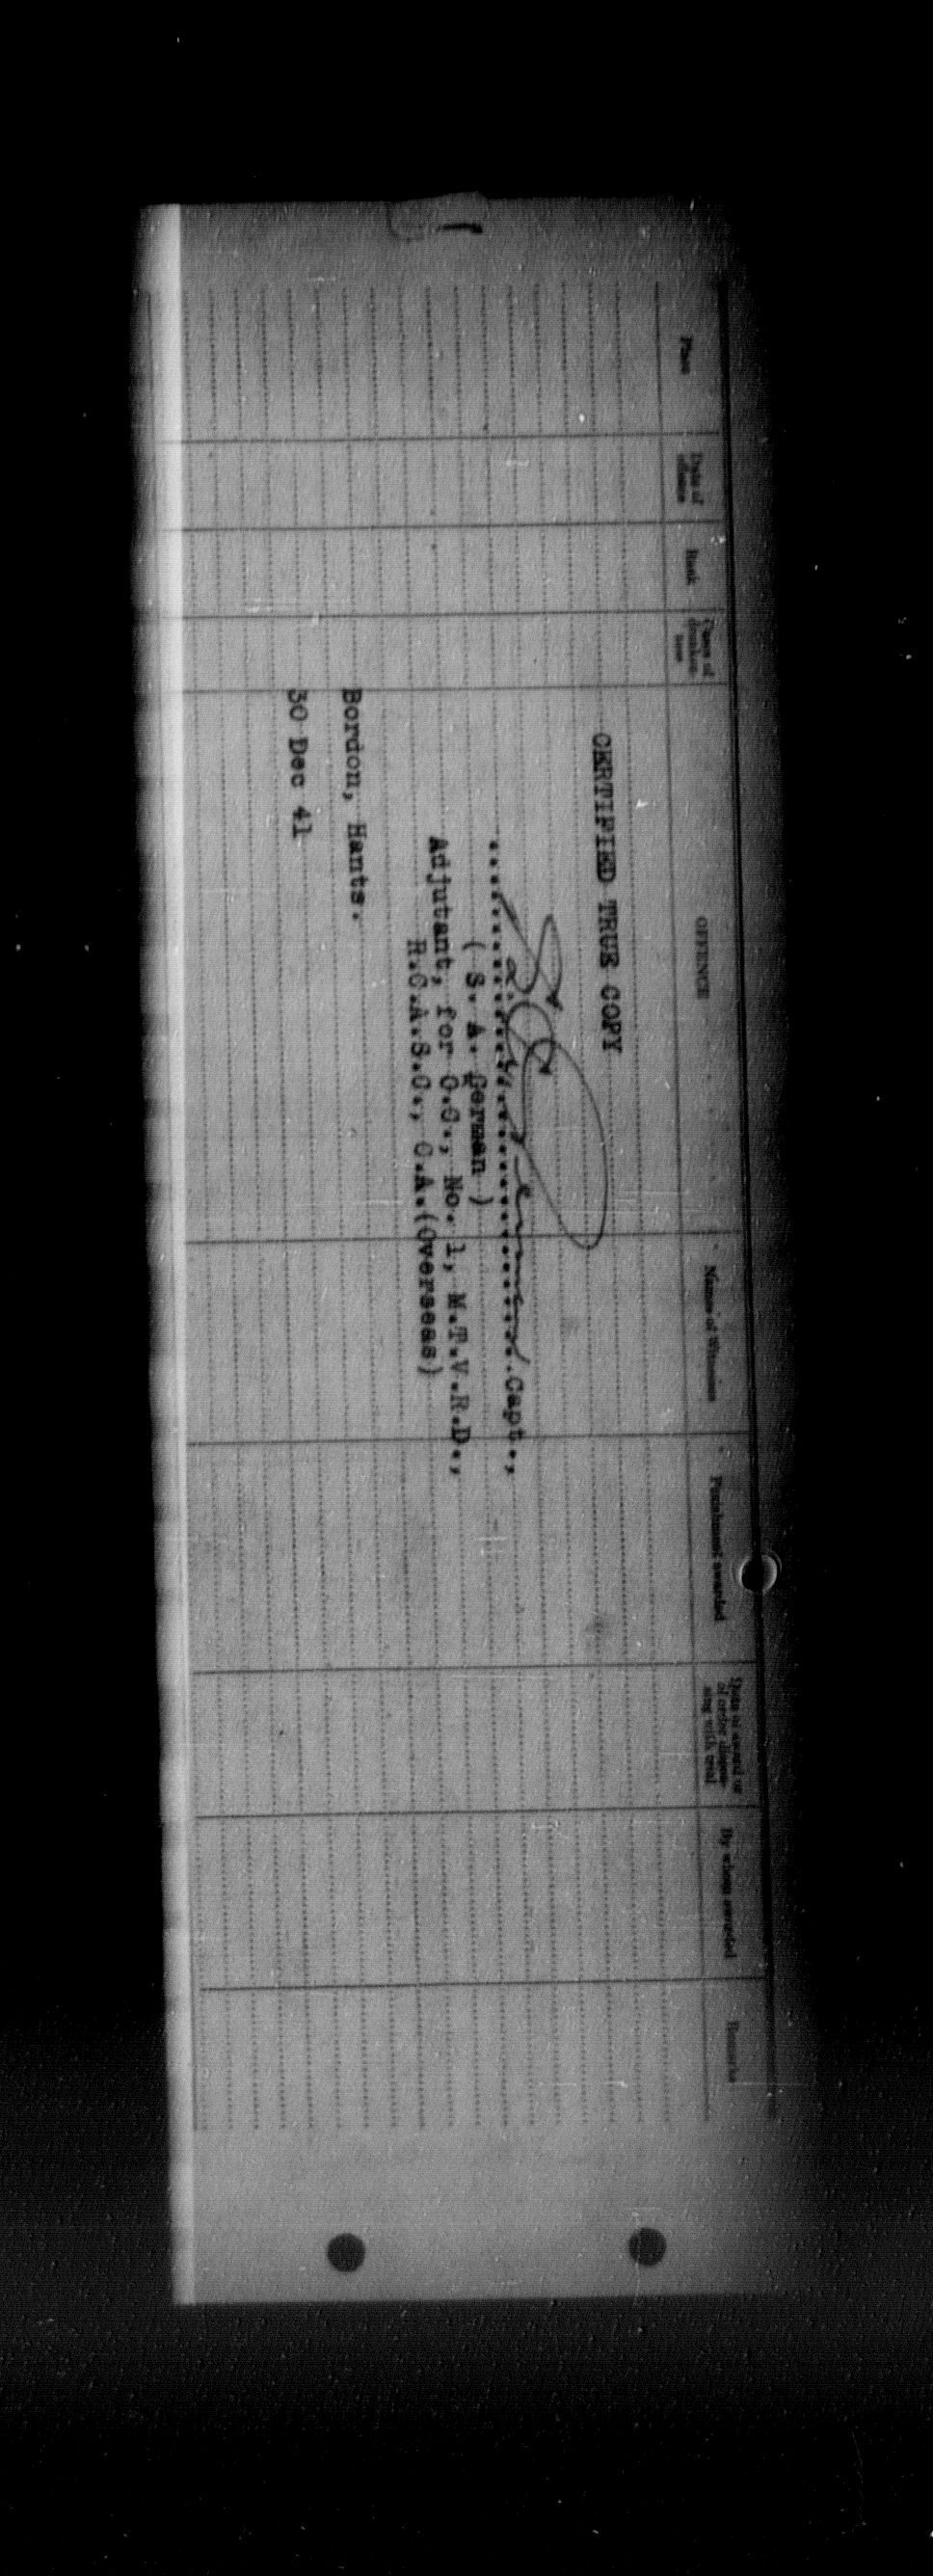 Place Date of offence Rank Cases of Drunkenness OFFENCE Names of Witnesses Punishment awarded Date of award or of order dispensing with trial By whom awarded Remarks
CERTIFIED TRUE COPY
S. A. German Capt.,
( S. A. German )
Adjutant, for O.C., No. 1, M.T.V.R.D.,
R.C.A.S.C., C.A.(Overseas)
Bordon, Hants.
30 Dec 41